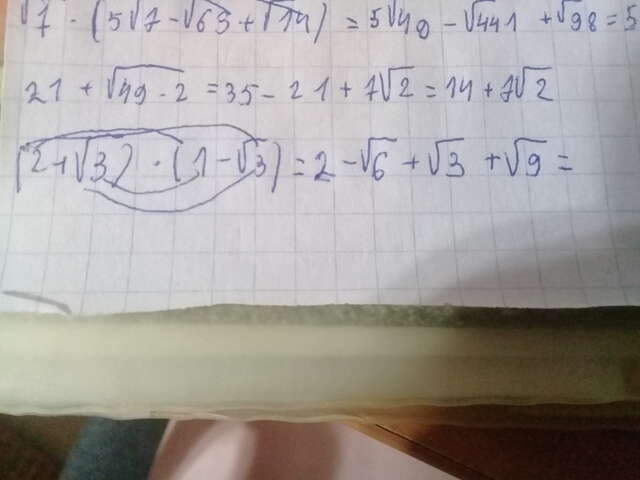 √7 · (5√7 - √63 + √14) = 5√49 - √441 + √98 = 5
21 + √49 · 2 = 35 - 21 + 7√2 = 14 + 7√2
(2 + √3) · (1 - √3) = 2 - √6 + √3 + √9 =